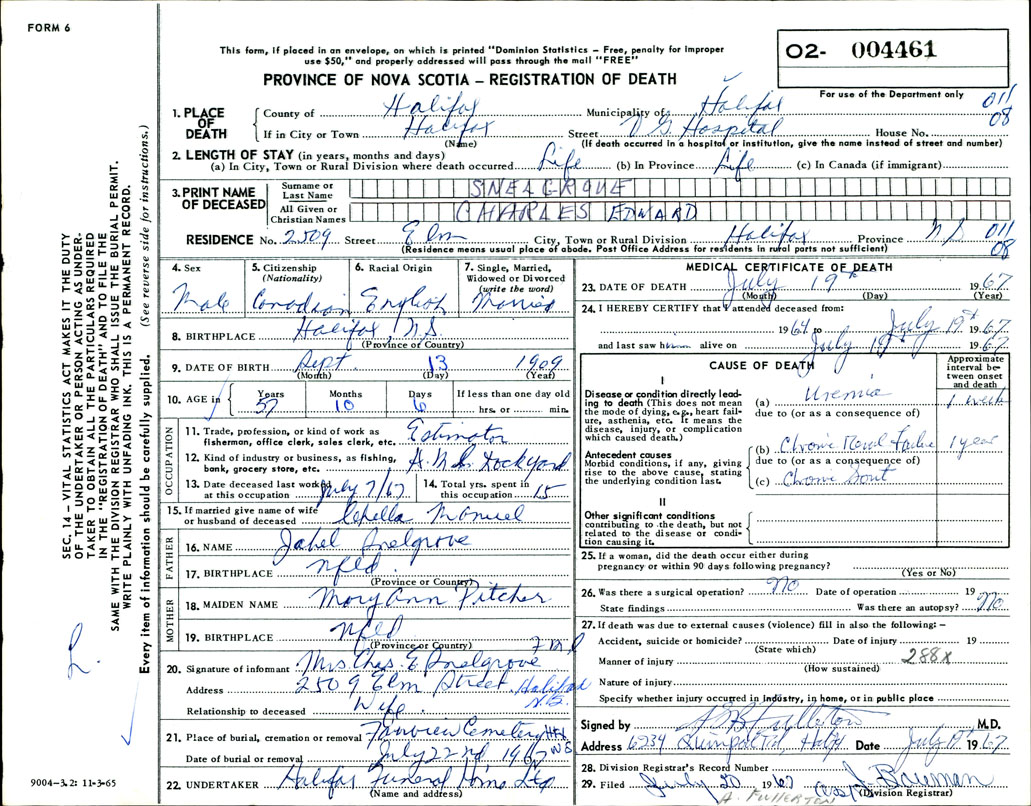 FORM 6
This form, if placed in an envelope, on which is printed "Dominion Statistics – Free, penalty for improper
use $50," and properly addressed will pass through the mail "FREE"
O2- 004461
PROVINCE OF NOVA SCOTIA – REGISTRATION OF DEATH
For use of the Department only
011
08
1. PLACE OF DEATH
County of Halifax Municipality of Halifax
If in City or Town Halifax Street V G Hospital House No.
(Name) (If death occurred in a hospital or institution, give the name instead of street and number)
2. LENGTH OF STAY (in years, months and days)
(a) In City, Town or Rural Division where death occurred Life (b) In Province Life (c) In Canada (if immigrant)
3. PRINT NAME OF DECEASED
Surname or Last Name SNELGROVE
All Given or Christian Names CHARLES EDWARD
RESIDENCE No. 2509 Street Elm City, Town or Rural Division Halifax Province N S 011
08
(Residence means usual place of abode. Post Office Address for residents in rural parts not sufficient)
4. Sex
Male
5. Citizenship (Nationality)
Canadian
6. Racial Origin
English
7. Single, Married, Widowed or Divorced (write the word)
Married
8. BIRTHPLACE Halifax, N.S.
(Province or Country)
9. DATE OF BIRTH Sept 13 1909
(Month) (Day) (Year)
10. AGE in
Years Months Days If less than one day old
57 10 6 hrs. or min.
OCCUPATION
11. Trade, profession, or kind of work as
fisherman, office clerk, sales clerk, etc. Estimator
12. Kind of industry or business, as fishing,
bank, grocery store, etc. Dockyard
13. Date deceased last worked
at this occupation July 7/67
14. Total yrs. spent in
this occupation 15
15. If married give name of wife
or husband of deceased Manuel
FATHER
16. NAME Snelgrove
17. BIRTHPLACE Nfld
(Province or Country)
MOTHER
18. MAIDEN NAME Mary Ann Pitcher
19. BIRTHPLACE Nfld
(Province or Country)
20. Signature of informant Mrs Chas. E. Snelgrove
Address 2509 Elm Street Halifax N.S.
Relationship to deceased Wife
21. Place of burial, cremation or removal Fairview Cemetery Hfx N S
Date of burial or removal July 22nd 1967
22. UNDERTAKER Halifax Funeral Home Ltd
(Name and address)
MEDICAL CERTIFICATE OF DEATH
23. DATE OF DEATH July 19th 1967
(Month) (Day) (Year)
24. I HEREBY CERTIFY that I attended deceased from:
1964 to July 19th 1967
and last saw h alive on July 19th 1967
CAUSE OF DEATH
Approximate interval between onset and death
I
Disease or condition directly leading to death (This does not mean
the mode of dying, e.g., heart failure, asthenia, etc. It means the
disease, injury, or complication
which caused death.)
(a) Uremia 1 week
due to (or as a consequence of)
Antecedent causes
Morbid conditions, if any, giving
rise to the above cause, stating
the underlying condition last.
(b) Chronic Renal Failure 1 year
due to (or as a consequence of)
(c) Chronic Gout
II
Other significant conditions
contributing to the death, but not
related to the disease or condition causing it.
25. If a woman, did the death occur either during
pregnancy or within 90 days following pregnancy?
(Yes or No)
26. Was there a surgical operation? No Date of operation 19
State findings Was there an autopsy? No
27. If death was due to external causes (violence) fill in also the following: –
Accident, suicide or homicide? Date of injury 19
(State which)
Manner of injury 288X
(How sustained)
Nature of injury
Specify whether injury occurred in industry, in home, or in public place
Signed by A B Fullerton M.D.
Address 6234 Quinpool Rd, Halifax Date July 19th 1967
28. Division Registrar's Record Number
29. Filed July 20 1967 Bauman
(Division Registrar)
A. FULLERTON
SEC. 14 – VITAL STATISTICS ACT MAKES IT THE DUTY
OF THE UNDERTAKER OR PERSON ACTING AS UNDERTAKER TO OBTAIN ALL THE PARTICULARS REQUIRED
IN THE "REGISTRATION OF DEATH" AND TO FILE THE
SAME WITH THE DIVISION REGISTRAR WHO SHALL ISSUE THE BURIAL PERMIT.
WRITE PLAINLY WITH UNFADING INK. THIS IS A PERMANENT RECORD.
Every item of information should be carefully supplied. (See reverse side for instructions.)
9004–3.2: 11-3-65